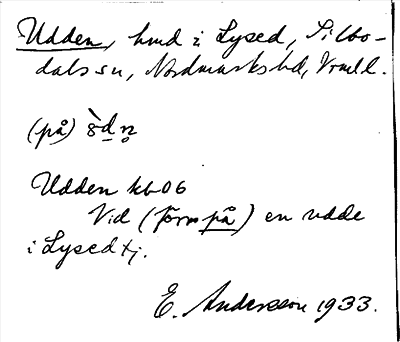 Udden, hmd i Lysed, Silbo-
dals sn, Nordmarks hd, Vrmld.
(på) 8̀dn̥
Udden kb 06
Vid (förr på) en udde
i Lysedtj.
E. Andersson 1933.